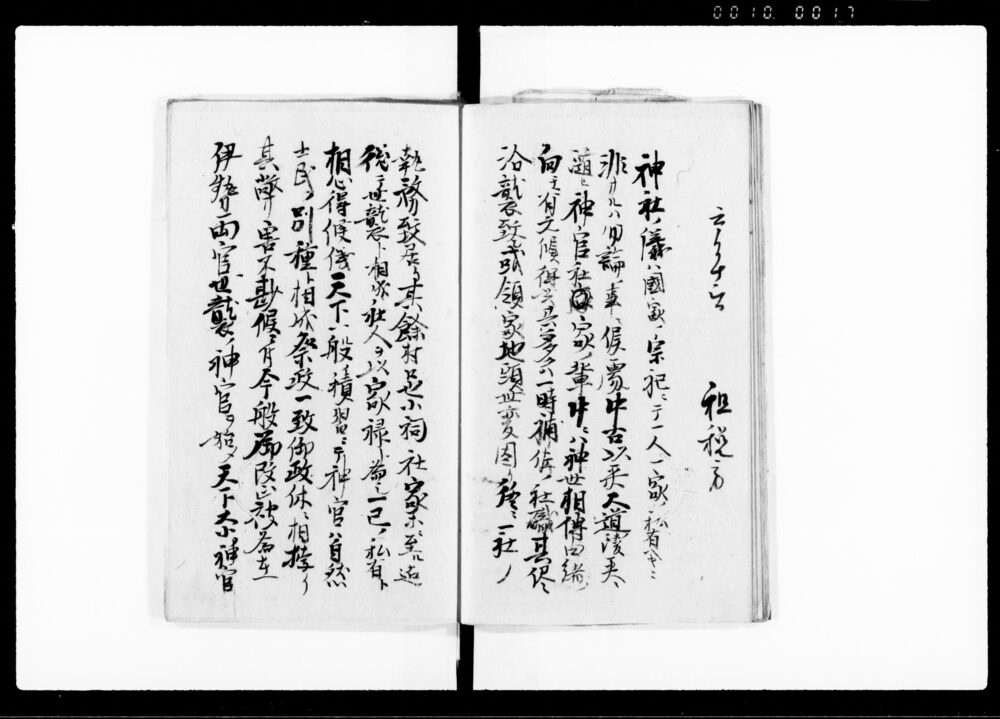 租税方
神社ノ儀ハ國家ノ宗祀ニテ一人一家ノ私有スヘキニ
非サルハ勿論ノ事ニ候處中古以来大道陵夷ニ
随ヒ神官社家ノ輩中ニハ神世相傳由緒ノ
向モ有之候得共多クハ一時補任ノ社職其侭
沿襲致シ或ハ領家地頭世変ニ因リ終ニ一社ノ
執務致居リ其餘村邑小祠社家等ニ至迄
総テ世襲ト相成社入ヲ以家禄ト為シ一己ノ私有ト
相心得候儀天下一般積習ニテ神官ハ自然
士民ノ別種ト相成祭政一致御政体ニ相悖リ
其弊害不尠候ニ付今般御改正被為在
伊勢両宮世襲ノ神官ヲ始メ天下大小神官